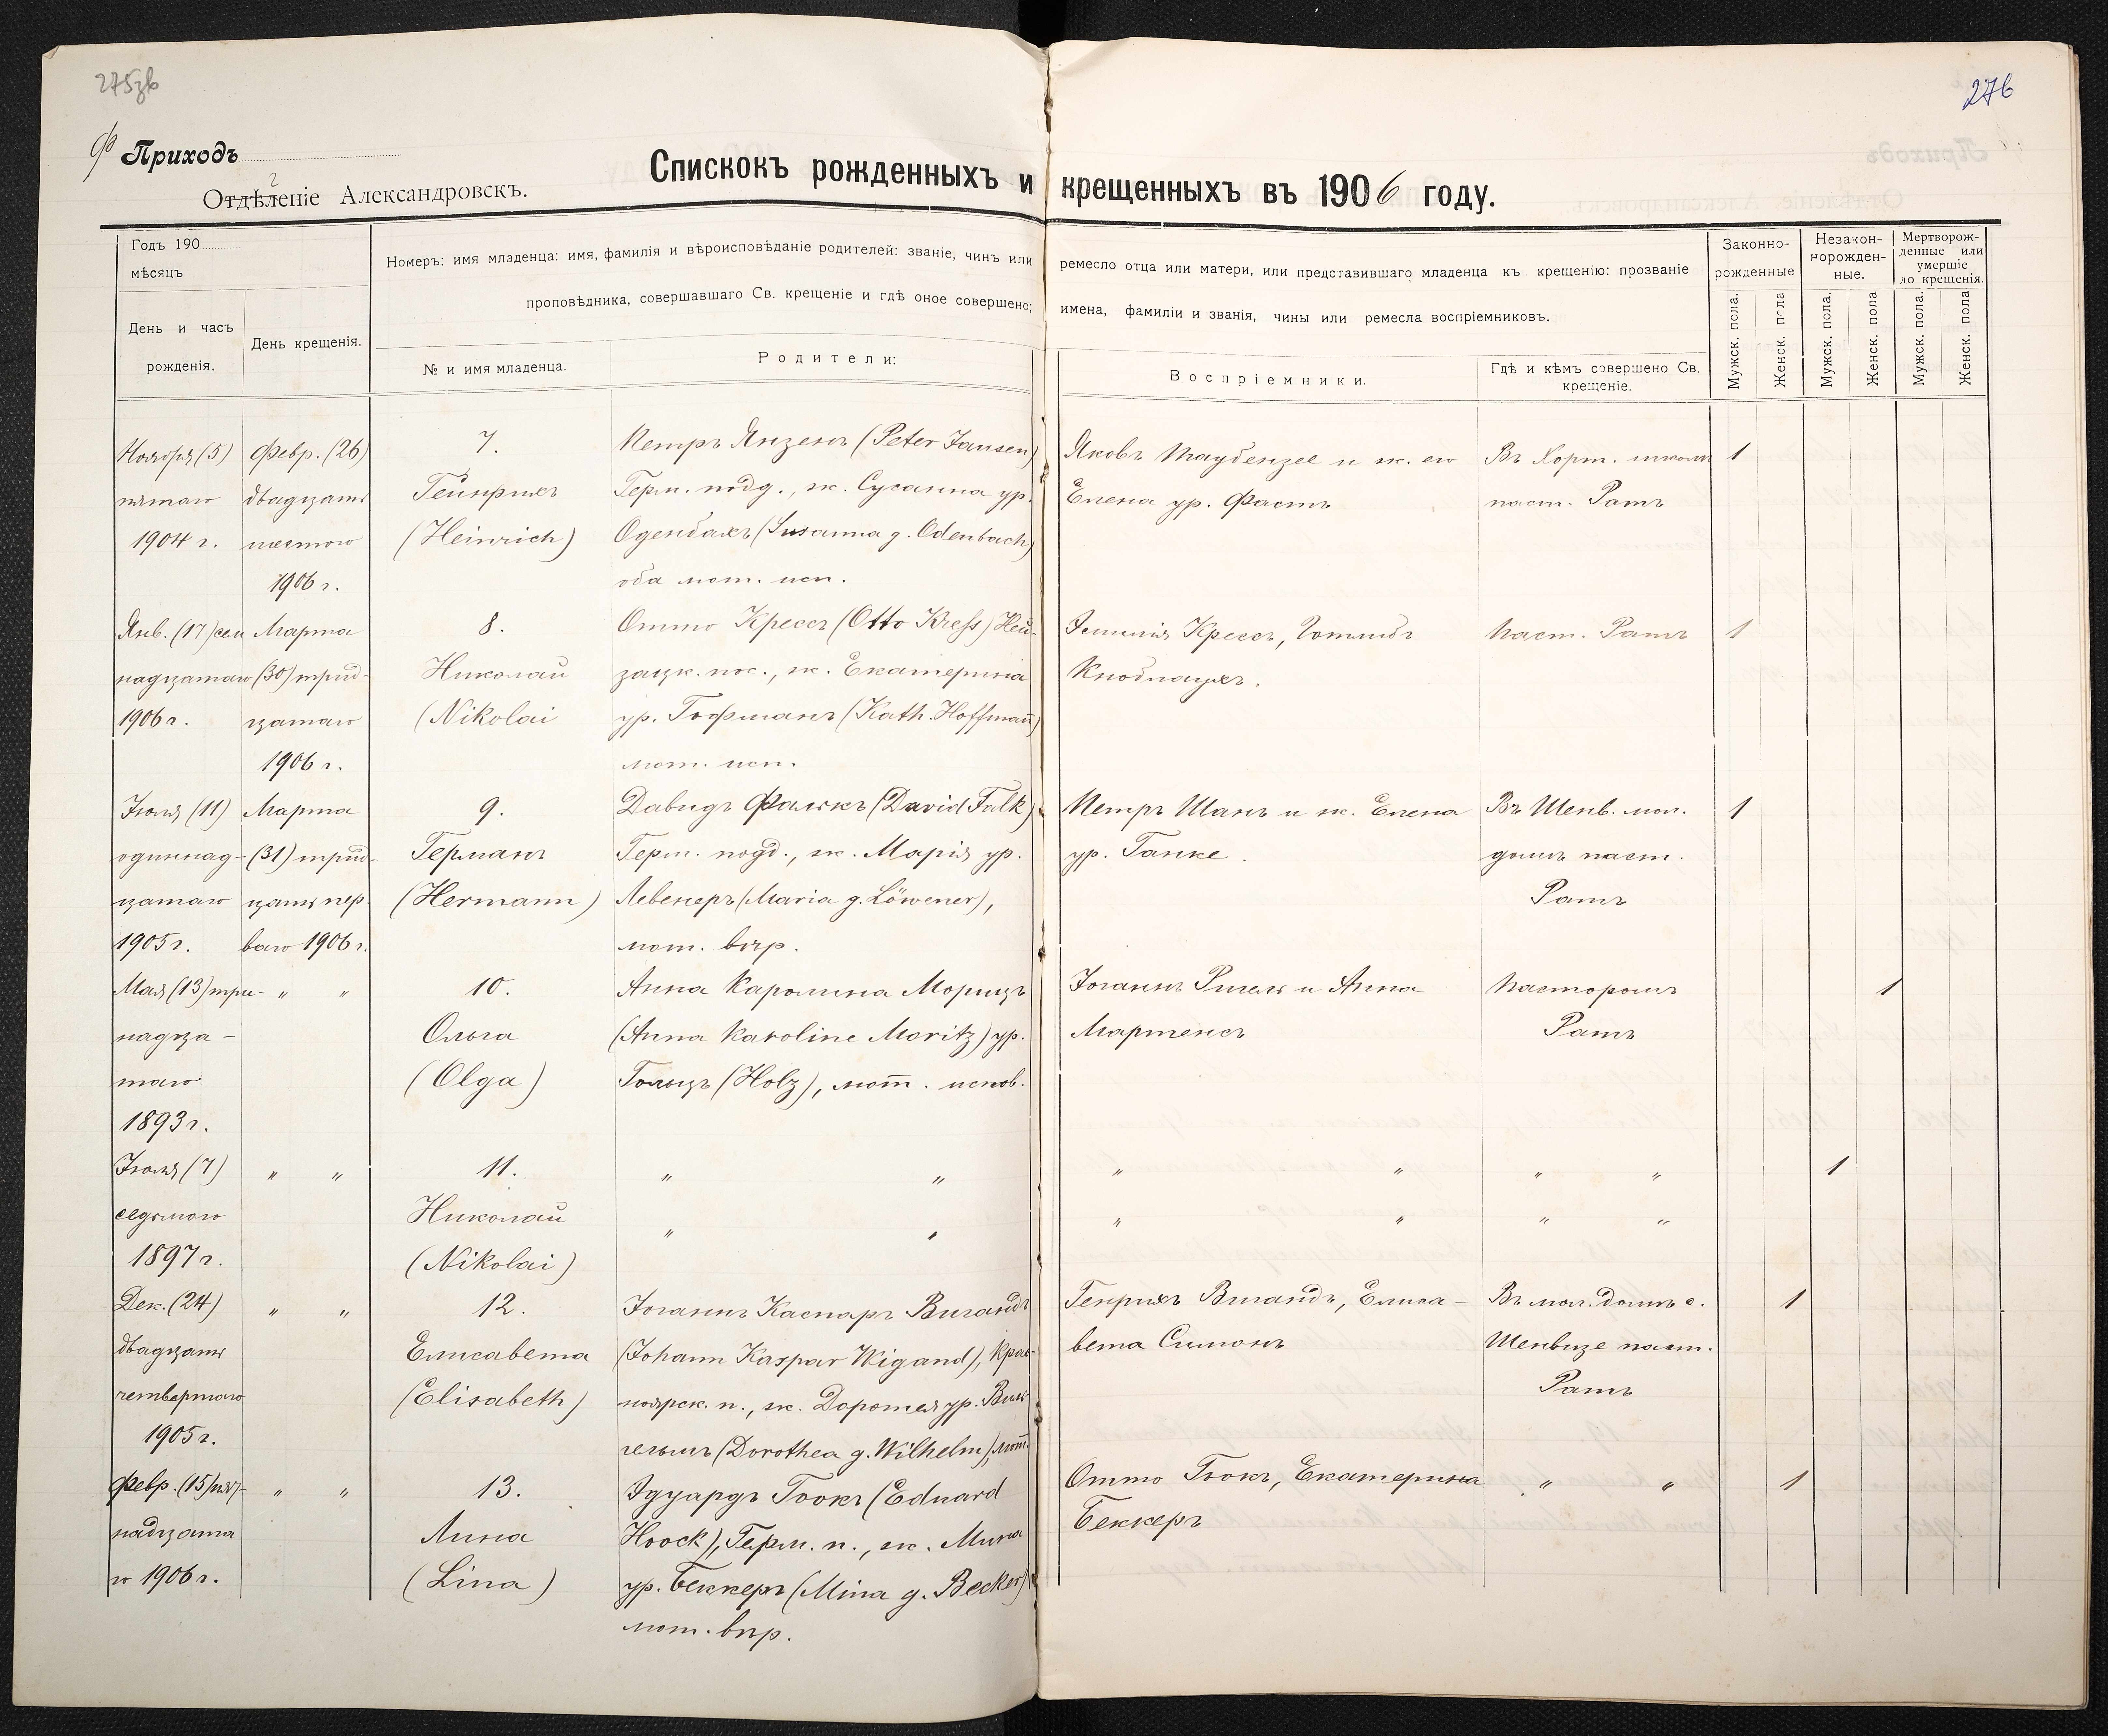 275зв
276
Ф Приходъ
г
Отдѣленіе Александровскъ.
Спискокъ рожденныхъ и крещенныхъ въ 1906 году.
Годъ 190
мѣсяцъ
День и часъ
рожденія.
День крещенія.
Номеръ: имя младенца: имя, фамилія и вѣроисповѣданіе родителей: званіе, чинъ или ремесло отца или матери, или представившаго младенца къ крещенію: прозваніе
проповѣдника, совершавшаго Св. крещеніе и гдѣ оное совершено; имена, фамиліи и званія, чины или ремесла воспріемниковъ.
№ и имя младенца.
Родители:
Воспріемники.
Гдѣ и кѣмъ совершено Св.
крещеніе.
Законно-
рожденные
Незакон-
норожден-
ные.
Мертворож-
денные или
умершіе
до крещенія.
Мужск. пола.
Женск. пола
Мужск. пола.
Женск. пола
Мужск. пола.
Женск. пола
Ноября (5)
пятаго
1904 г.
Февр. (26)
двадцать
шестого
1906 г.
7.
Гейнрихъ
(Heinrich)
Петръ Янзенъ (Peter Jansen)
Герм. подд., ж. Сусанна ур.
Оденбахъ (Susanna g. Odenbach)
оба лют. исп.
Яковъ Таубензее и ж. его
Елена ур. Фастъ
Въ Хорт. школѣ
паст. Ратъ
1
Янв. (17) сем
надцатаго
1906 г.
Марта
(30) трид-
цатаго
1906 г.
8.
Николай
(Nikolai
Отто Крессъ (Otto Kreß) Ней-
зацк. пос., ж. Екатерина
ур. Гофманъ (Kath. Hoffmann)
лют. исп.
Эмилія Крессъ, Готлибъ
Кноблаухъ.
Паст. Ратъ
1
Іюля (11)
одиннад-
цатаго
1905 г.
Марта
(31) трид-
цать пер-
ваго 1906 г.
9.
Германъ
(Hermann)
Давидъ Фалькъ (David Falk)
Герм. подд., ж. Марія ур.
Левенеръ (Maria g. Löwener),
лют. вѣр.
Петръ Шанъ и ж. Елена
ур. Ганке.
Въ Шенв. мол.
домѣ паст.
Ратъ
1
Мая (13) три-
надца-
таго
1893 г.
" "
10.
Ольга
(Olga)
Анна Каролина Морицъ
(Anna Karoline Moritz) ур.
Гольцъ (Holz), лют. испов.
Іоганнъ Ригель и Анна
Мартенсъ
Пасторомъ
Ратъ
1
Іюля (7)
седьмого
1897 г.
" "
11.
Николай
(Nikolai)
" "
" "
" "
" "
" "
" "
1
Дек. (24)
двадцать
четвертаго
1905 г.
" "
12.
Елисавета
(Elisabeth)
Іоганнъ Каспаръ Вигандъ
(Johann Kaspar Wigand), Крас-
ноярск. п., ж. Доротея ур. Виль-
гельмъ (Dorothea g. Wilhelm), лют.
Генрихъ Вигандъ, Елиса-
вета Симонъ
Въ мол. домѣ с.
Шенвизе паст.
Ратъ
1
Февр. (15) пят-
надцата
го 1906 г.
" "
13.
Лина
(Lina)
Эдуардъ Гоокъ (Eduard
Hoock), Герм. п., ж. Мина
ур. Беккеръ (Mina g. Becker)
лют. вѣр.
Отто Гоокъ, Екатерина
Беккеръ
" "
1